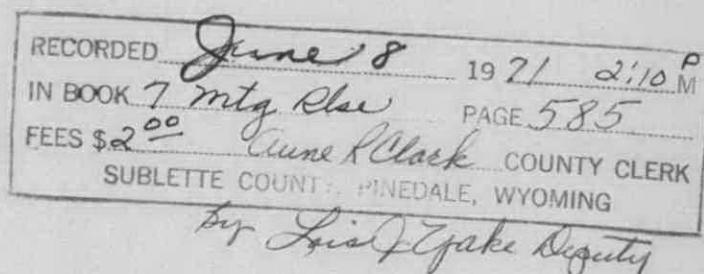 RECORDED June 8 1971 2:10 P M
IN BOOK 7 Mtg Rlse PAGE 585
FEES $2 00 R Clark COUNTY CLERK
SUBLETTE COUNTY, PINEDALE, WYOMING
by Lois J Deputy